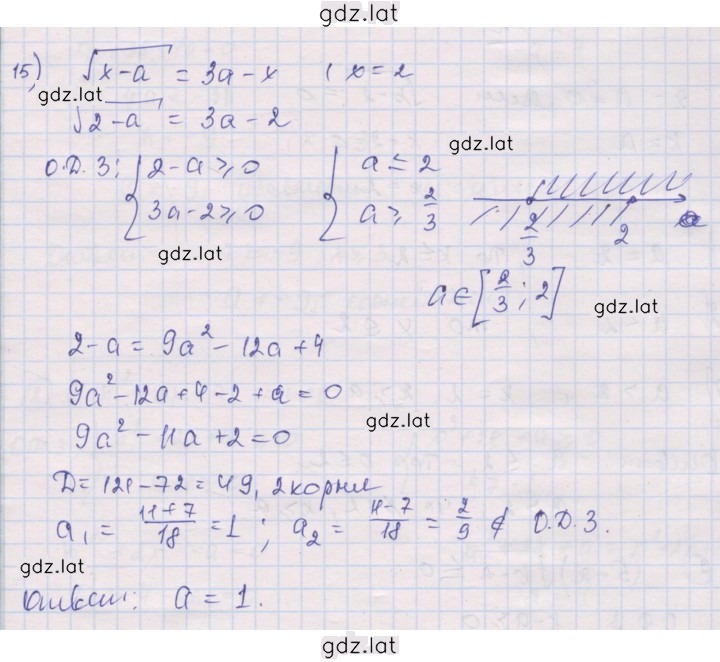 gdz.lat
15) √x-a = 3a-x ( x=2
gdz.lat
√2-a = 3a-2
gdz.lat
О.Д.З: { 2-a ⩾ 0 { a ≤ 2
3a-2 ⩾ 0 a ⩾ 2/3
2/3 2 a
gdz.lat
a ∈ [2/3; 2]
gdz.lat
2-a = 9a² - 12a + 4
9a² - 12a + 4 - 2 + a = 0
gdz.lat
9a² - 11a + 2 = 0
Д = 121 - 72 = 49, 2 корня
a₁ = (11+7)/18 = 1 ; a₂ = (11-7)/18 = 2/9 ∉ О.Д.З.
gdz.lat
Ответ: a = 1.
gdz.lat